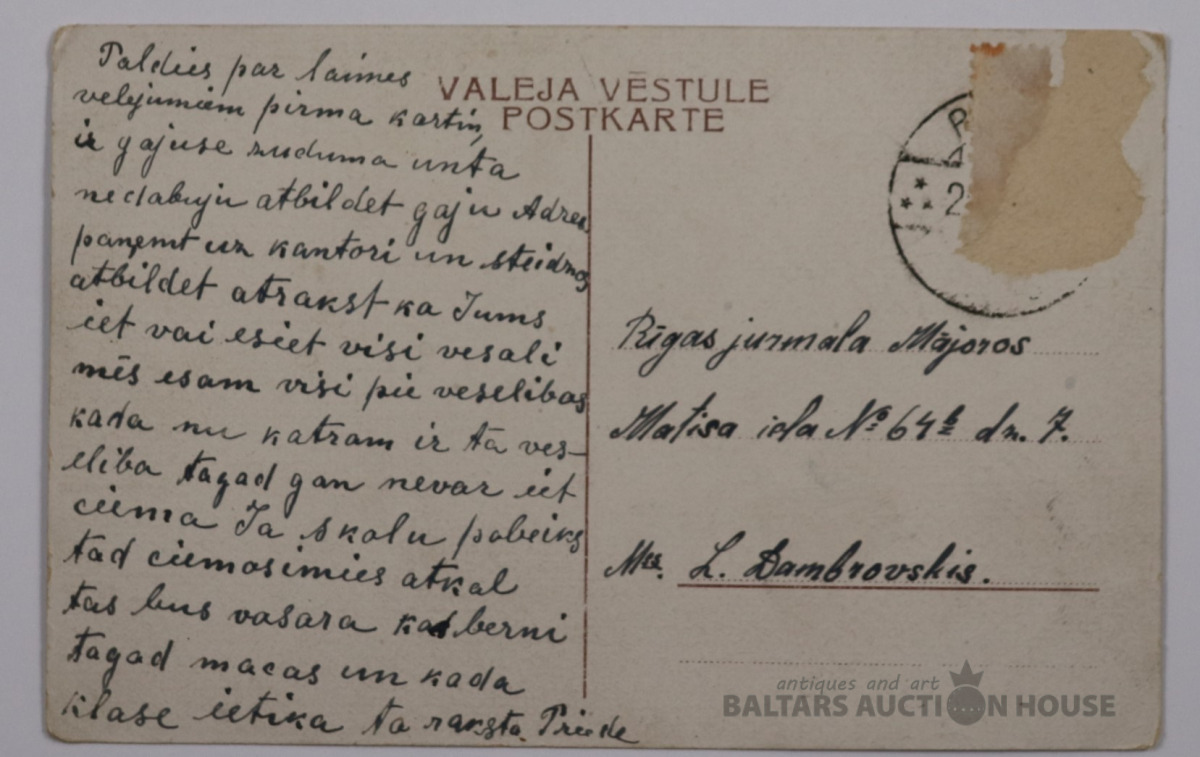 Paldies par laimes
velejumiem pirma kartin,
ir gajuse zuduma unta
nedabuju atbildet gaju Adres
paņemt uz kantori un steidzos
atbildet atrakst ka Jums
iet vai esiet visi vesali
mēs esam visi pie veselibas
kada nu katram ir ta ves-
eliba tagad gan nevar iet
ciema Ja skolu pabeiks
tad ciemosimies atkal
tas bus vasara kad berni
tagad macas un kada
klase ietika ta raksta. Priede
VALEJA VĒSTULE
POSTKARTE
2
Rīgas jurmala Majoros
Matisa iela No 64b dz. 7.
L. Dambrovskis.
antiques and art
BALTARS AUCTION HOUSE